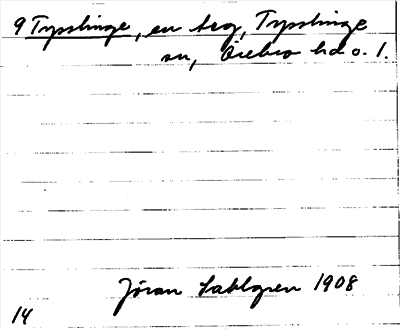 9 Tysslinge, en terg, Tysslinge
sn, Örebro hd o. l.
Jöran Sahlgren 1908
14